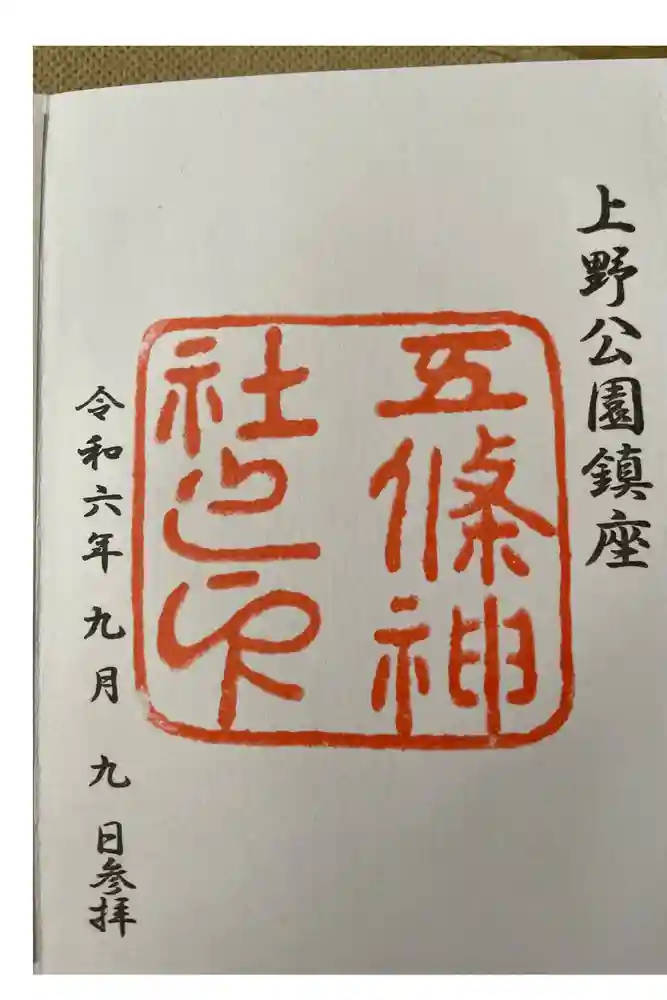 上野公園鎮座
五條神
社之印
令和六年 九月 九 日参拝